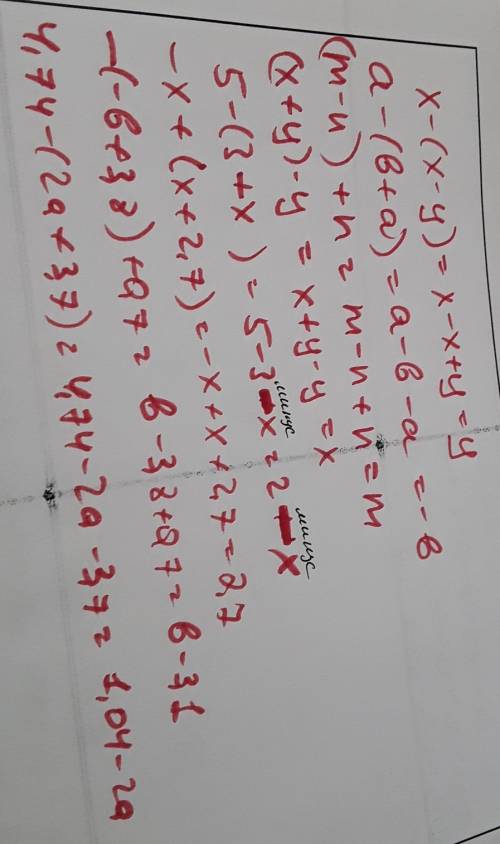 x-(x-y)=x-x+y=y
a-(в+a)=a-в-a=-в
(m-n)+n=m-n+n=m
(x+y)-y=x+y-y=x
5-(3+x)=5-3-x=2-x
минус минус
-x+(x+2,7)=-x+x+2,7=2,7
-(-в+3,8)+0,7=в-3,8+0,7=в-3,1
4,74-(2a+3,7)=4,74-2a-3,7=1,04-2a